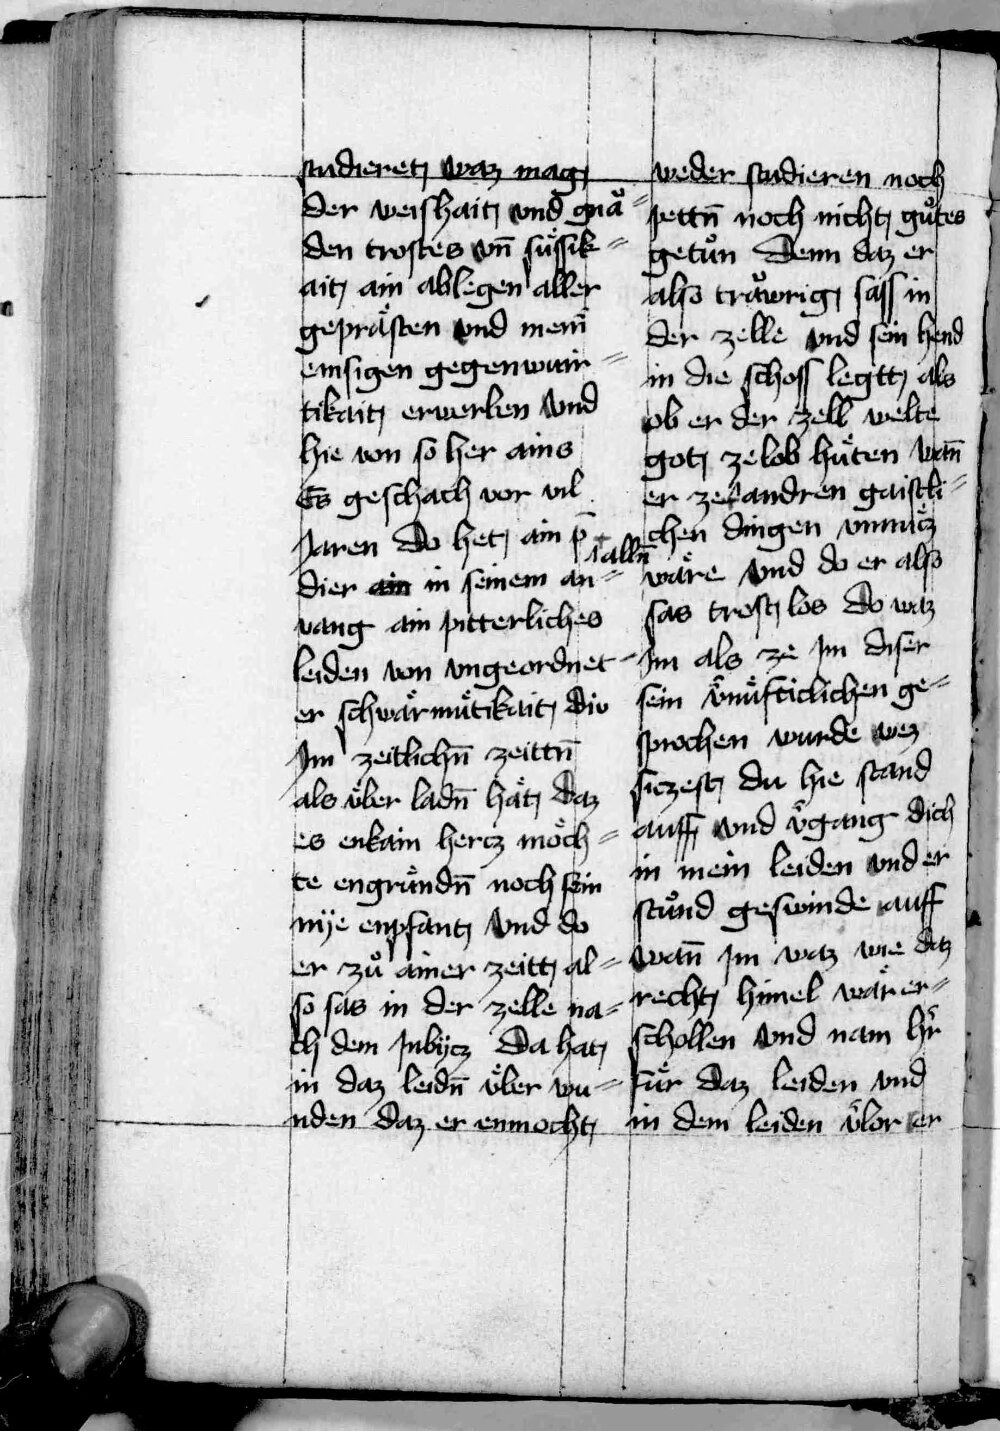 studieret waz mag
der weishait vnd gnaͧ
den trostes vn̄ suͤssik=
ait ain ablegen aller
gepraͤsten vnd meīͤ
emsigen gegenwuͤr=
tikait erwerben vnd
hie von so her ains
Es geschach vor vil
Jaren do het ain p̄
dier in seinem an=
vang ain pitterliches
leiden von vngeordnet-
er schwaͤrmuͤtikait div
Jm zeitlichn̄ zeittn̄
als vͤber ladn̄ haͤt daz
es enkain hercz moͤch=
te engruͤndn̄ noch sein
nÿe enpfant vnd do
er zuͦ ainer zeitt al=
so sas in der zelle na=
ch dem Jnbÿcz Da hat
in daz leidn̄ vͤber wu=
nden daz er enmocht
weder studieren noch
pettn̄ noch nicht guͦtes
getuͦn Denn daz er
also traͧwrig sass in
der zelle vnd sein hend
in die schoss legtt als
ob er der zell welte
got ze lob huͤten wan̄
er ze andren gaistli=
chen dingen vnnucz
waͤre vnd do er also
sas trost los do waz
Jm als ze Jm diser
sein vͤnuͤfticlichen ge=
sprochen wurde wez
siczest du hie stand
auff vnd vͤgang dich
in mein leiden vnd er
stuͦnd geswinde auff
wan̄ Jm waz wie daz
recht himel waͤr er=
schollen vnd nam hr̄
fuͤr daz leiden vnd
in dem leiden vͤlor er